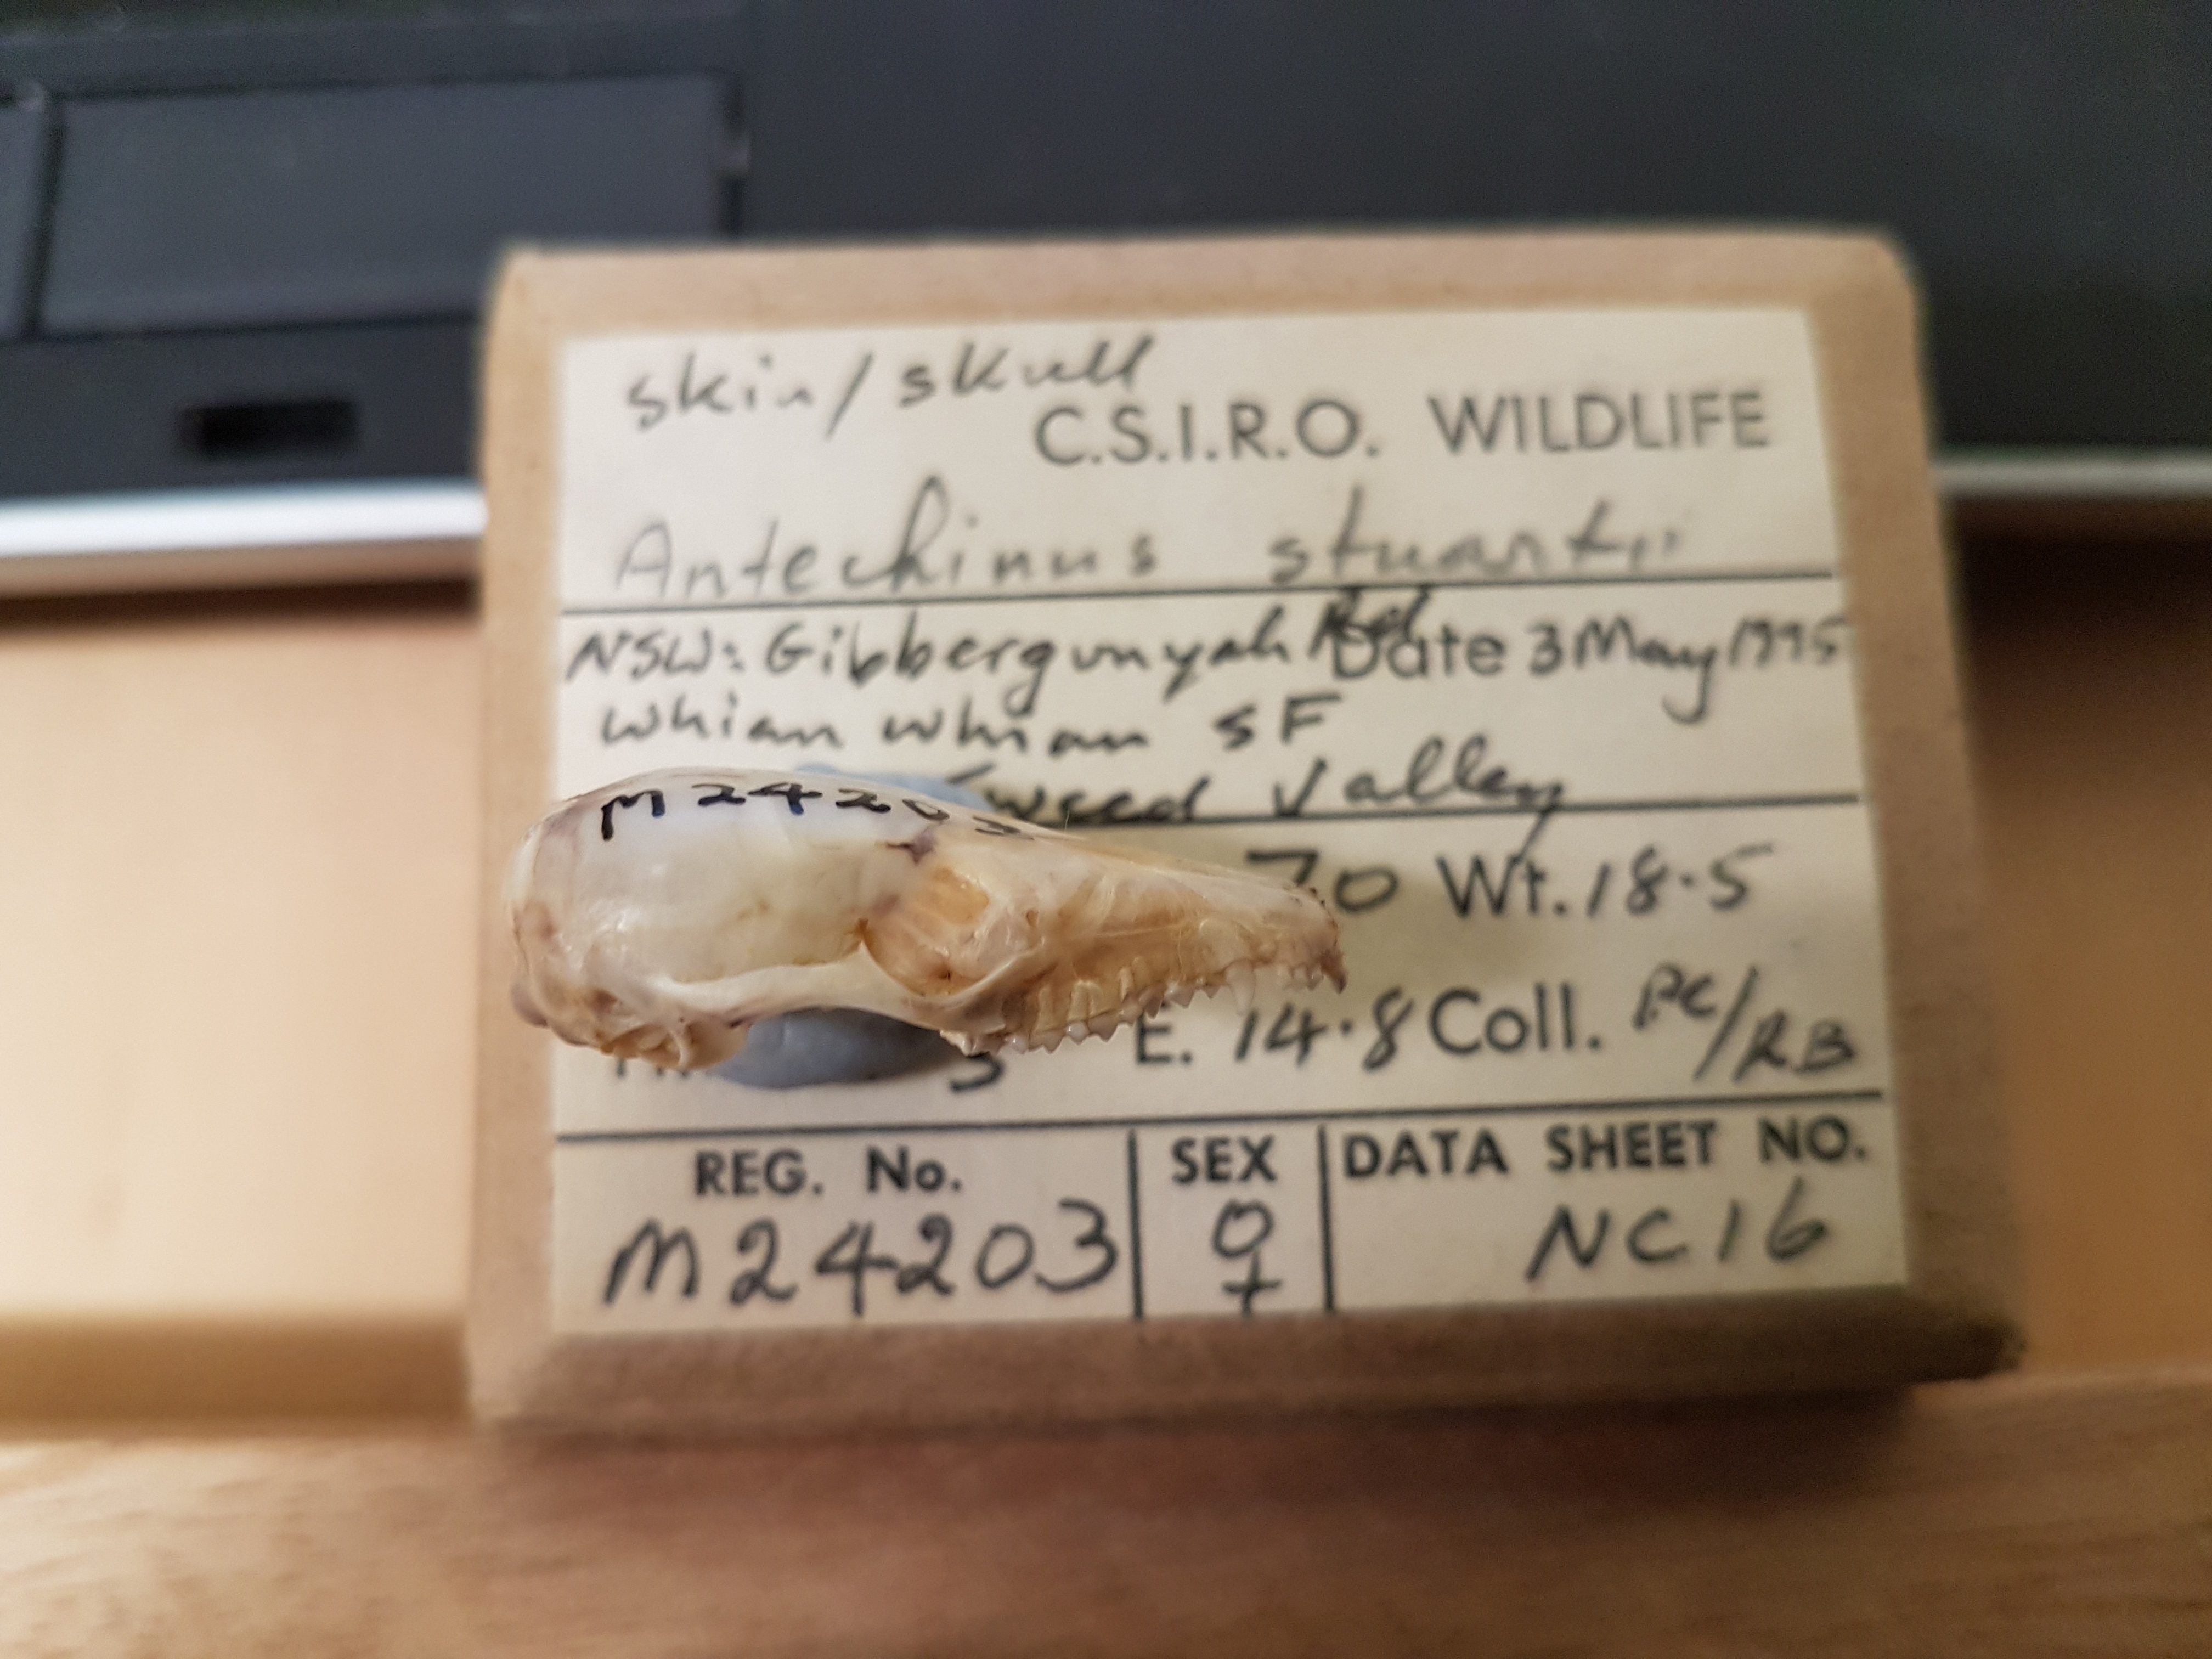 skin/skull
C.S.I.R.O. WILDLIFE
Antechinus stuartii
NSW: Gibbergunyah Rd Date 3 May 1995
Whian Whian SF
Tweed Valley
M24203
70 Wt. 18.5
E. 14.8 Coll. PC/RB
REG. No. SEX DATA SHEET NO.
M24203 ♀ NC16